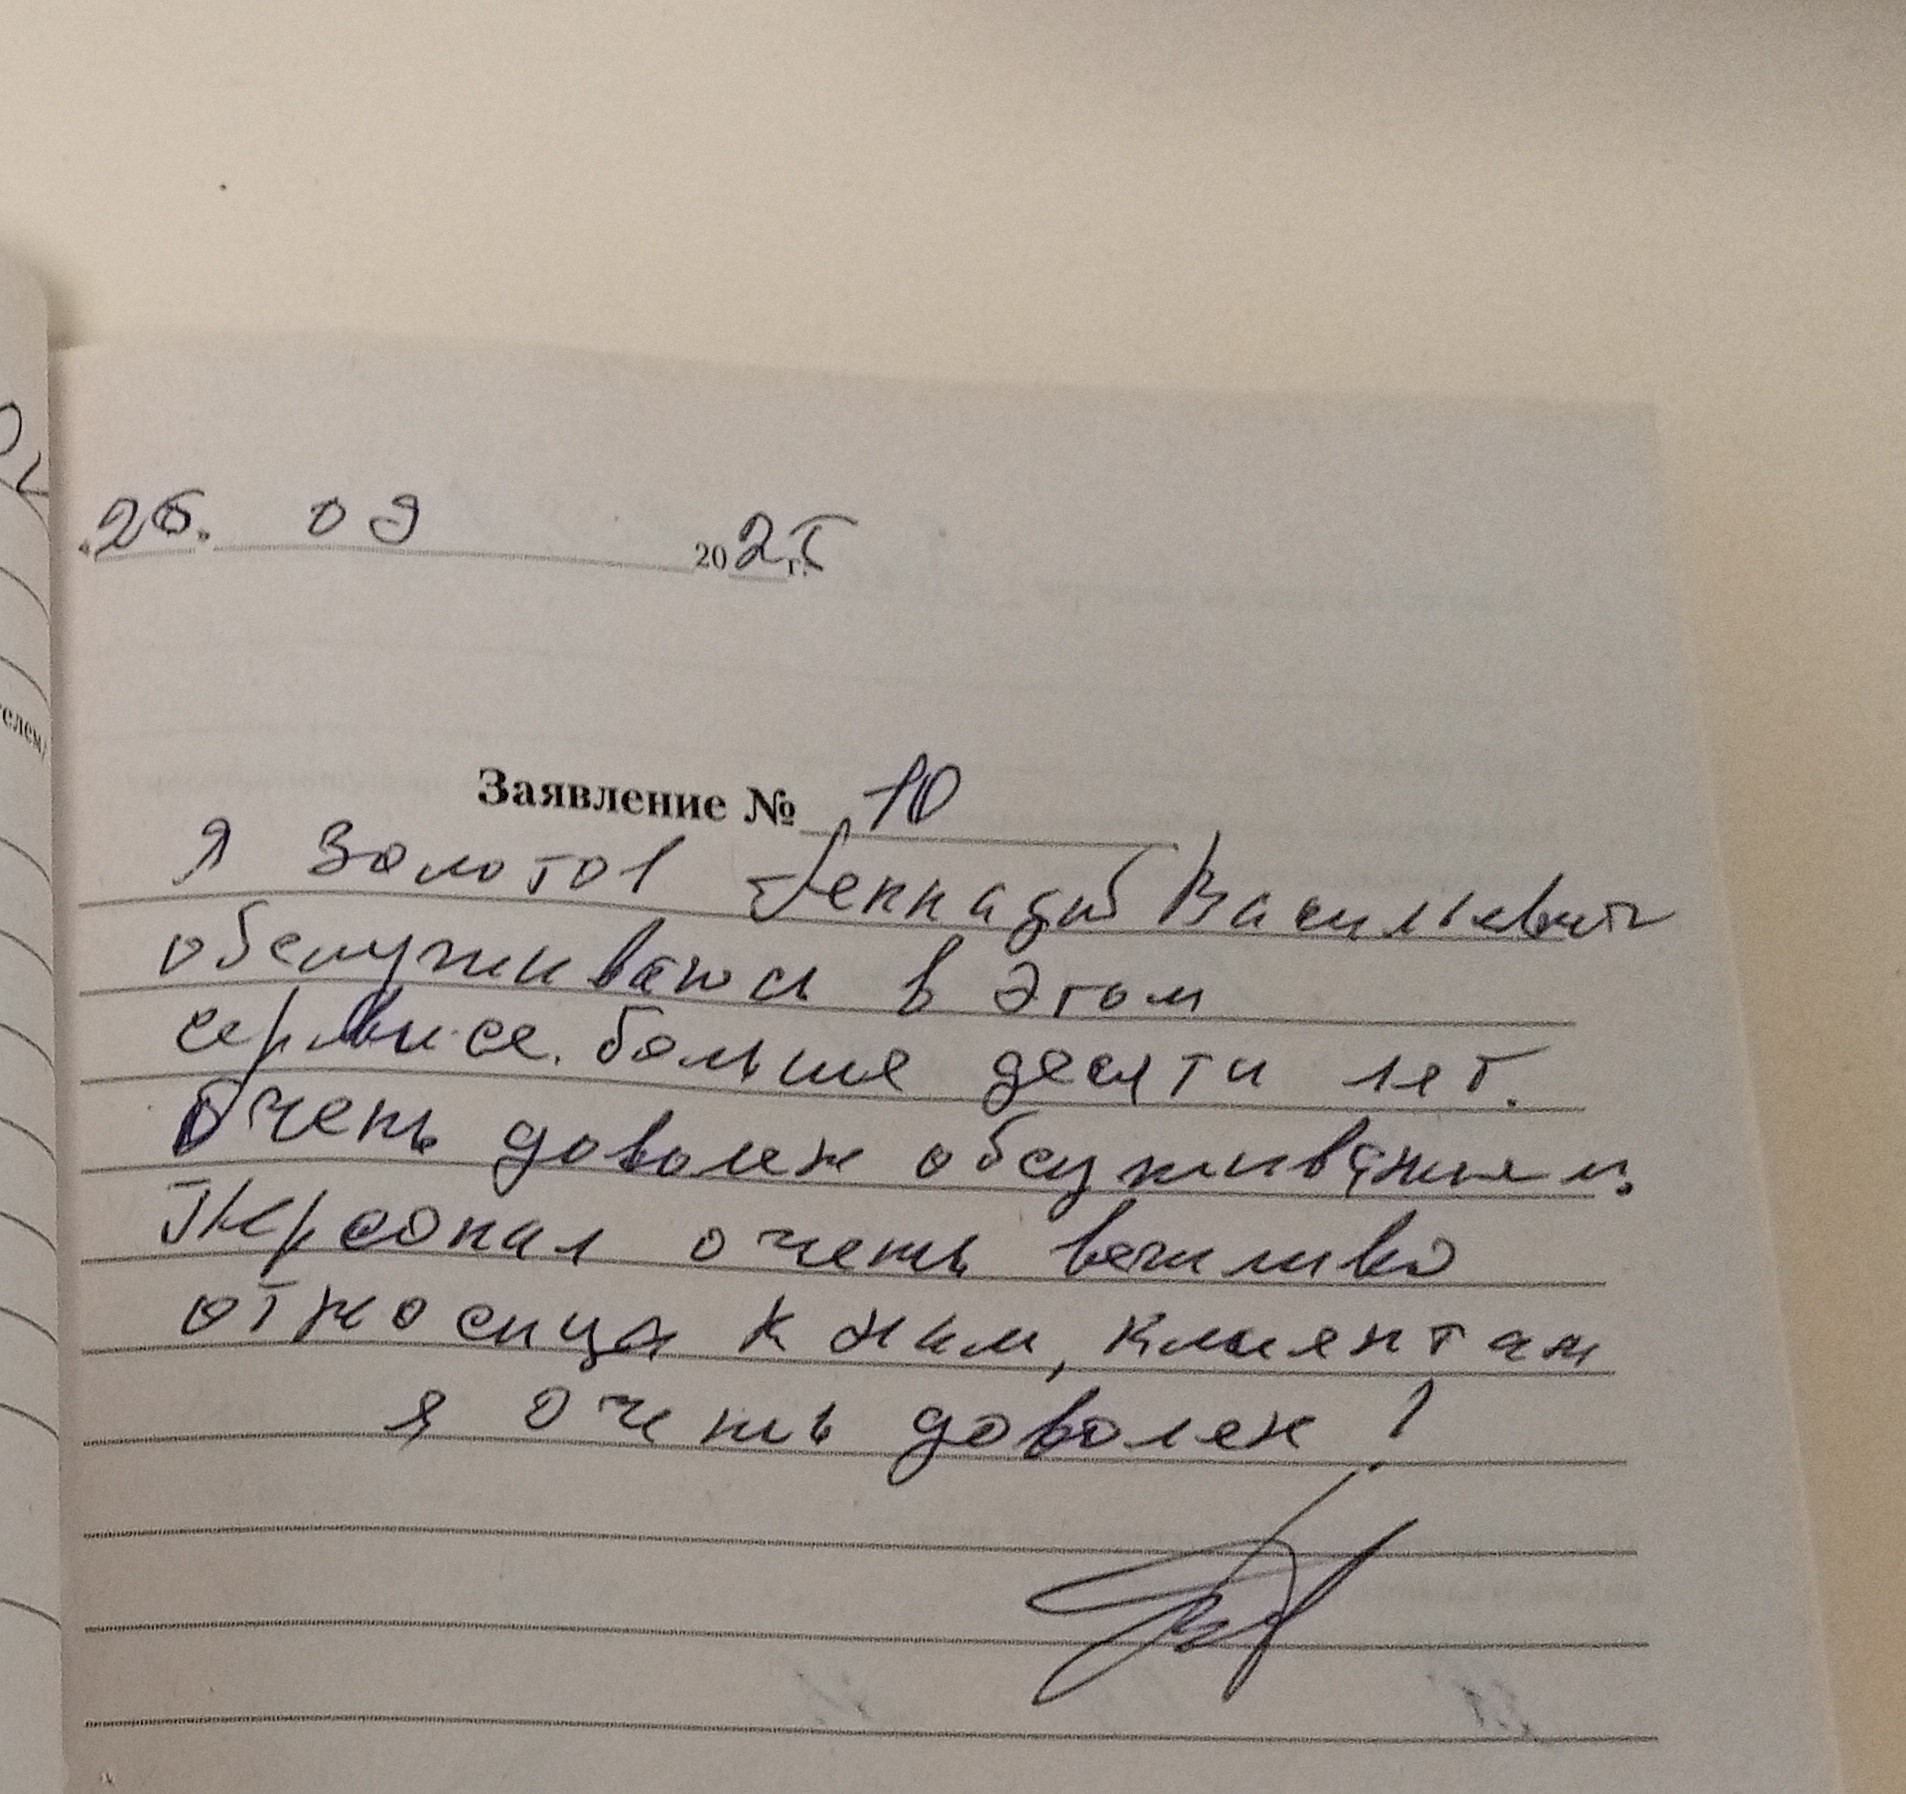 «26» 09 2025 г.
Заявление № 10
Я Золотов Геннадий Васильевич
обслуживаюсь в этом
сервисе. больше десяти лет.
Очень доволен обслуживанием.
Персонал очень вежливо
относица к ним, клиентам
я очень доволен!
телем/